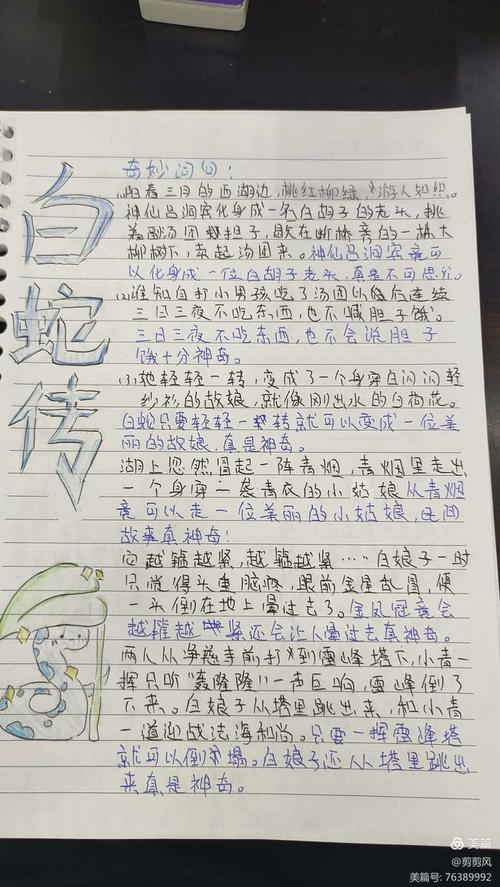 白蛇传
奇妙词句:
(1)阳春三月的西湖边,桃红柳绿,游人如织。
神仙吕洞宾化身成一个白胡子的老头,挑
着副汤团担子,歇在断桥旁的一株大
柳树下,卖起汤团来。神仙吕洞宾竟可
以化身成一位白胡子老头,真是不可思议。
(2)谁知自打小男孩吃了汤团以后连续
三日三夜不吃东西,也不喊肚子饿。
三日三夜不吃东西,也不会说肚子
饿十分神奇。
(3)她轻轻一转,变成了一个身穿白闪闪轻
纱衫的姑娘,就像刚出水的白荷花。
白蛇只要轻轻一转就可以变成一位美
丽的姑娘,真是神奇。
湖上忽然冒起一阵青烟,青烟里走出
一个身穿一袭青衣的小姑娘从青烟
竟可以走一位美丽的小姑娘,民间
故事真神奇!
向越箍越紧,越箍越紧……白娘子一时
只觉得头重脑,眼前金星乱冒,便
一头倒在地上晕过去了。金凤冠竟会
越箍越紧还会让人晕过去真神奇。
两人从净慈寺前打到雷峰塔下,小青一
挥只听“轰隆隆!”一声巨响,雷峰倒了
下来。白娘子从塔里跳出来,和小青
一道迎战法海和尚。只要一挥雷峰塔
就可以倒塌。白娘子还从塔里跳出
来真是神奇。
美篇
@剪剪风
美篇号:76389992